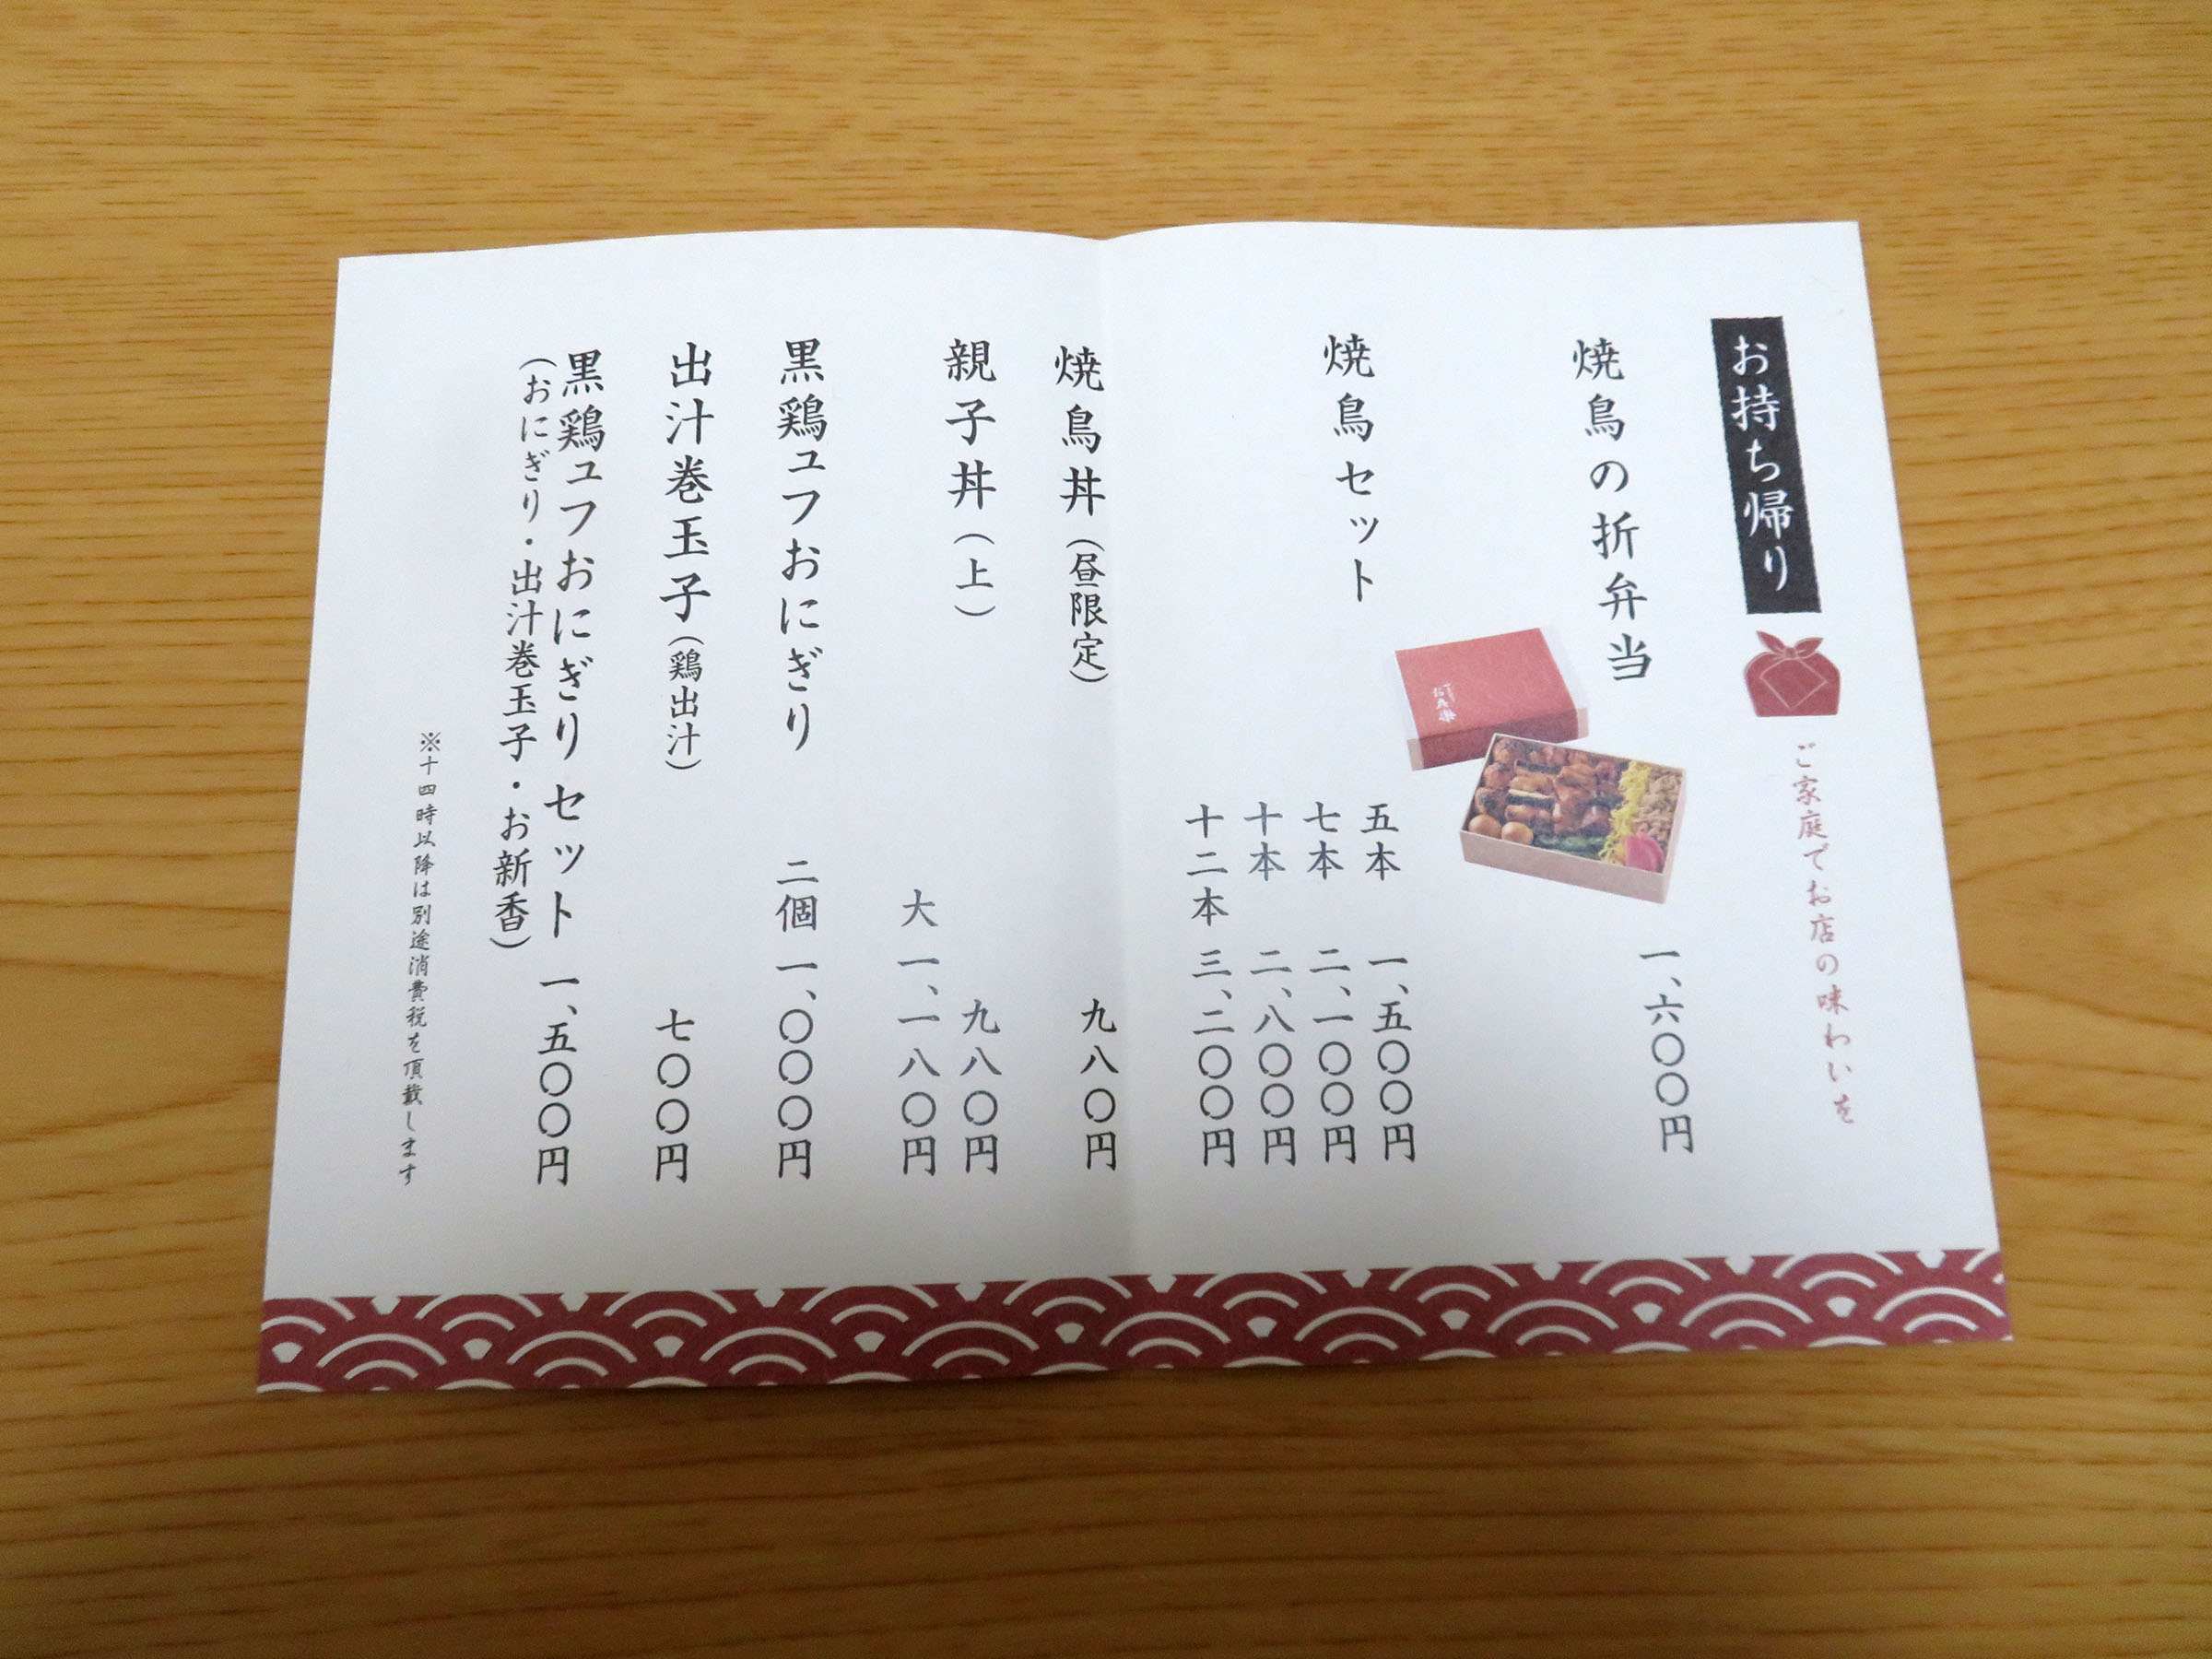 お持ち帰り
ご家庭でお店の味わいを
焼鳥の折弁当 一、六〇〇円
焼鳥セット
五本 一、五〇〇円
七本 二、一〇〇円
十本 二、八〇〇円
十二本 三、二〇〇円
焼鳥丼（昼限定） 九八〇円
親子丼（上） 九八〇円
大 一、一八〇円
黒鶏ュフおにぎり 二個 一、〇〇〇円
出汁巻玉子（鶏出汁） 七〇〇円
黒鶏ュフおにぎり セット 一、五〇〇円
（おにぎり・出汁巻玉子・お新香）
※十四時以降は別途消費税を頂戴します